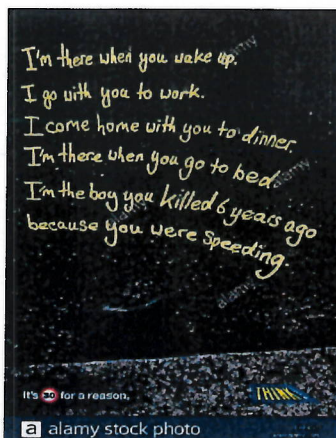 I'm there when you wake up.
I go with you to work.
I come home with you to dinner.
I'm there when you go to bed.
I'm the boy you killed 6 years ago
because you were speeding.
It's 30 for a reason.
THINK!
alamy
alamy
alamy
alamy
a alamy stock photo